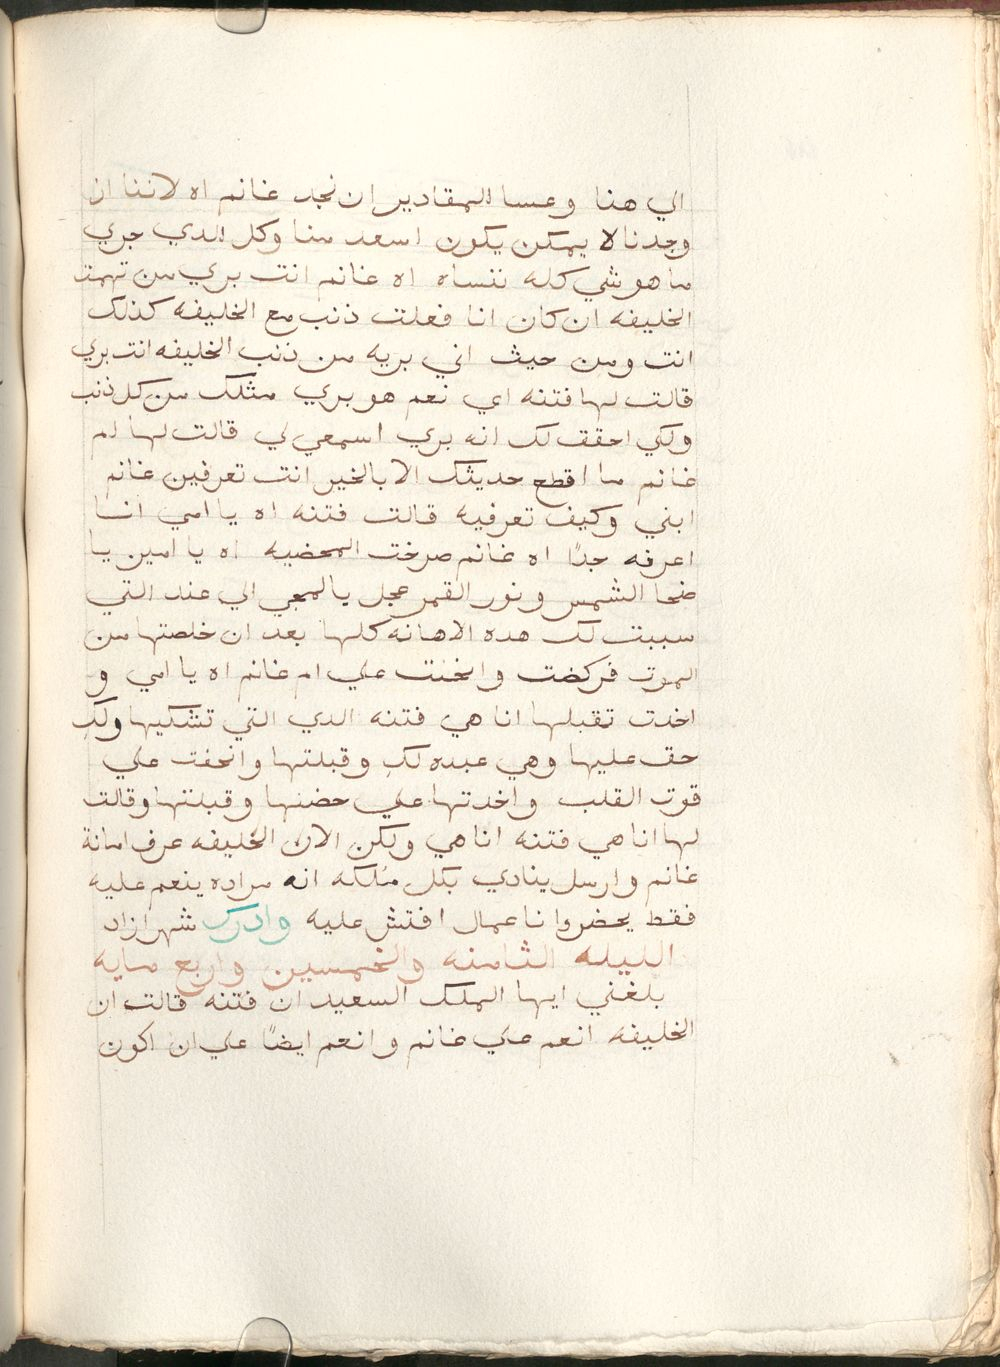 الي هنا وعسا المقادير ان نجد غانم اه لاننا ان
وجدنا لا يمكن يكون اسعد منا وكل الدي جري
ما هو شي كله ننساه اه غانم انت بري من تهمت
الخليفه ان كان انا فعلت ذنب مع الخليفه كذلك
انت ومن حيث اني بريه من ذنب الخليفه انت بري
قالت لها فتنه اي نعم هو بري مثلك من كل ذنب
ولكي احقق لك انه بري اسمعي لي قالت لها ام
غانم ما اقطع حديثك الا بالخير انت تعرفين غانم
ابني وكيف تعرفيه قالت فتنه اه يا امي انا
اعرفه جدًا اه غانم صرخت المحضيه اه يا امين يا
ضحا الشمس ونور القمر عجل بالمجي الي عند التي
سببت لك هده الاهانه كلها بعد ان خلصتها من
الموت فركضت وانحنت علي ام غانم اه يا امي و
اخدت تقبلها انا هي فتنه الدي التي تشكيها ولكِ
حق عليها وهي عبده لكِ وقبلتها وانحفت علي
قوت القلب واخدتها علي حضنها وقبلتها وقالت
لها انا هي فتنه انا هي ولكن الان الخليفه عرف امانة
غانم وارسل ينادي بكل مُلكه انه مراده ينعم عليه
فقط يحضر وانا عمال افتش عليه وادرك شهرازاد
الليله الثامنه والخمسين واربع مايه
بلغني ايها الملك السعيد ان فتنه قالت ان
الخليفه انعم علي غانم وانعم ايضًا علي ان اكون